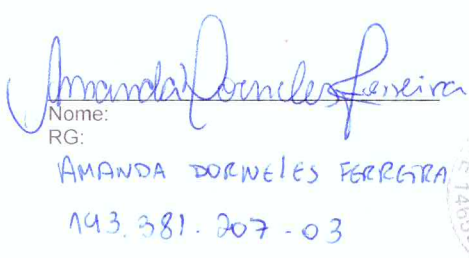 Amanda Dorneles Ferreira
Nome:
RG:
AMANDA DORNELES FERREIRA
143.381.207-03